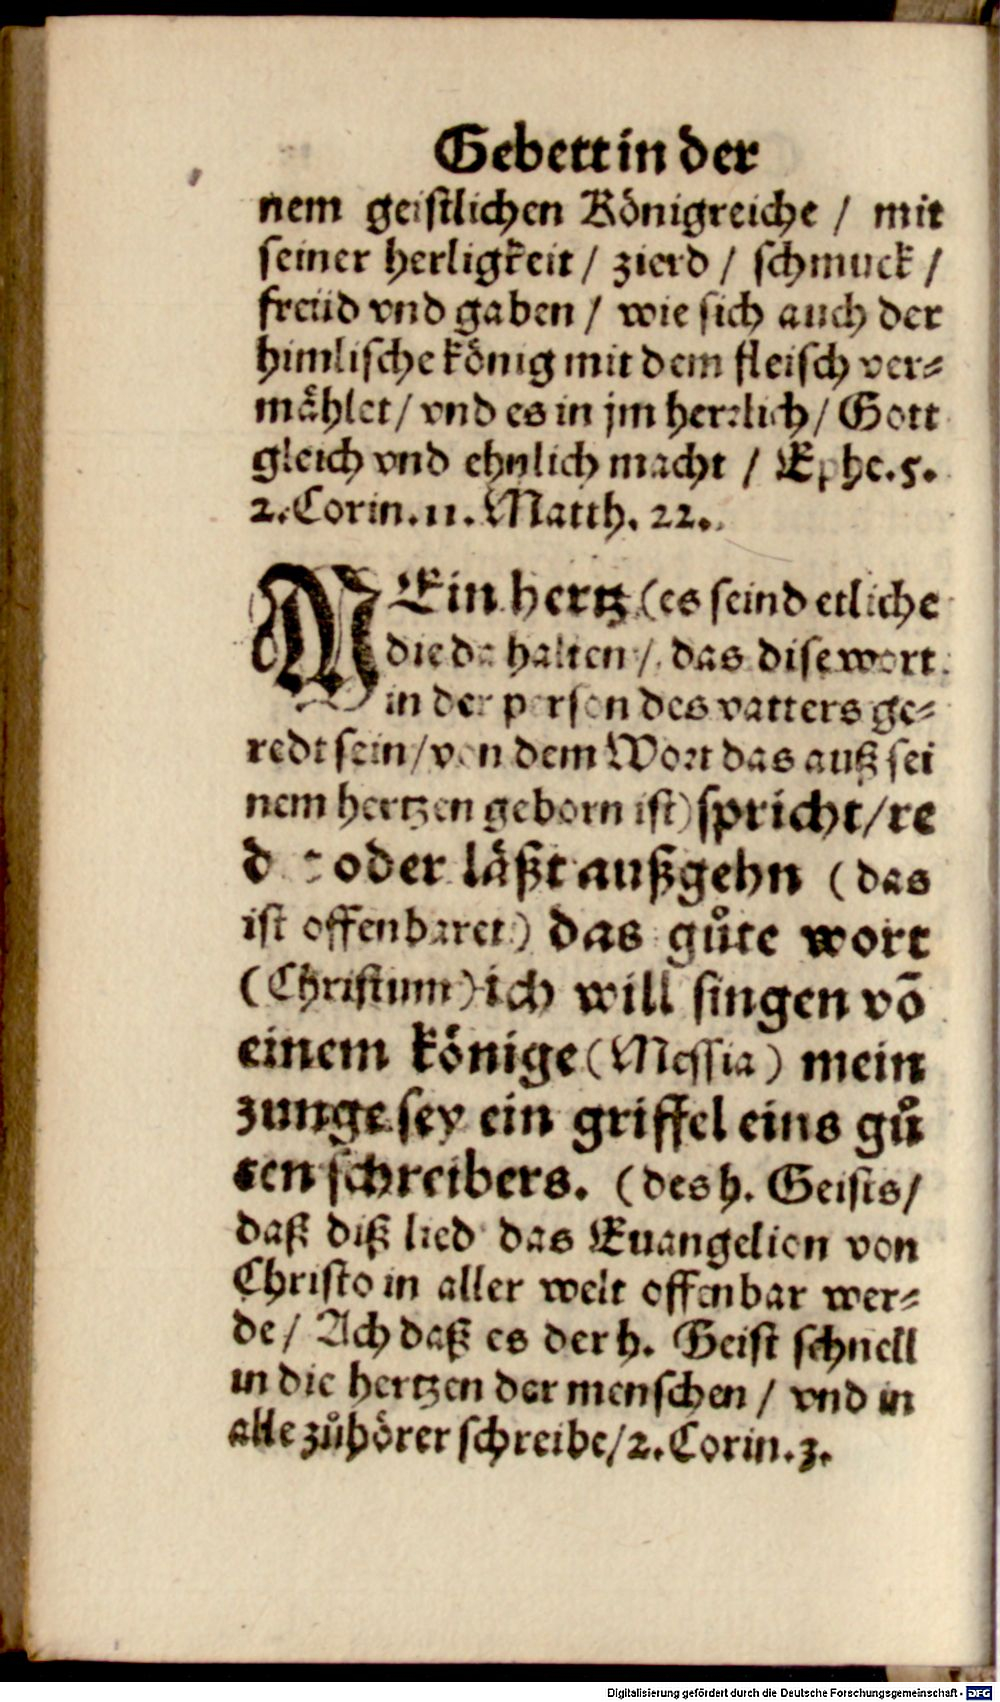 Gebett in der
nem geistlichen Königreiche / mit
seiner herligkeit / zierd / schmuck /
freüd vnd gaben / wie sich auch der
himlische könig mit dem fleisch ver⸗
mählet / vnd es in jm herrlich / Gott
gleich vnd ehnlich macht / Ephe. 5.
2. Corin. 11. Matth. 22.
MEin hertz (es seind etliche
die da halten / das dise wort
in der person des vatters ge⸗
redt sein / von dem Wort das auß sei
nem hertzen geborn ist) spricht / re
det oder läßt außgehn (das
ist offenbaret) das gůte wort
(Christum) ich will singen võ
einem könige (Messia) mein
zunge sey ein griffel eins gů
ten schreibers. (des h. Geists /
daß diß lied das Euangelion von
Christo in aller welt offenbar wer⸗
de / Ach daß es der h. Geist schnell
in die hertzen der menschen / vnd in
alle zůhörer schreibe / 2. Corin. 3.
Digitalisierung gefördert durch die Deutsche Forschungsgemeinschaft - DFG